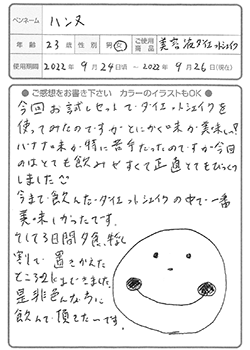 ペンネーム ハンヌ
年齢 23歳 性別 男・女 ご使用商品 美容液ダイエットシェイク
使用期間 2022年9月24日頃 ～ 2022年9月26日(現在)
●ご感想をお書き下さい カラーのイラストもOK●
今回お試しセットでダイエットシェイクを
使ってみたのですがとにかく味が美味しい!!
バナナ味が特に苦手だったのですが今回
のはとても飲みやすくて正直とてもびっくり
しました
今まで飲んだダイエットシェイクの中で一番
美味しかったです。
そして3日間夕食
割で置きかえた
ところ
是非色んな方に
飲んで頂きたいです。